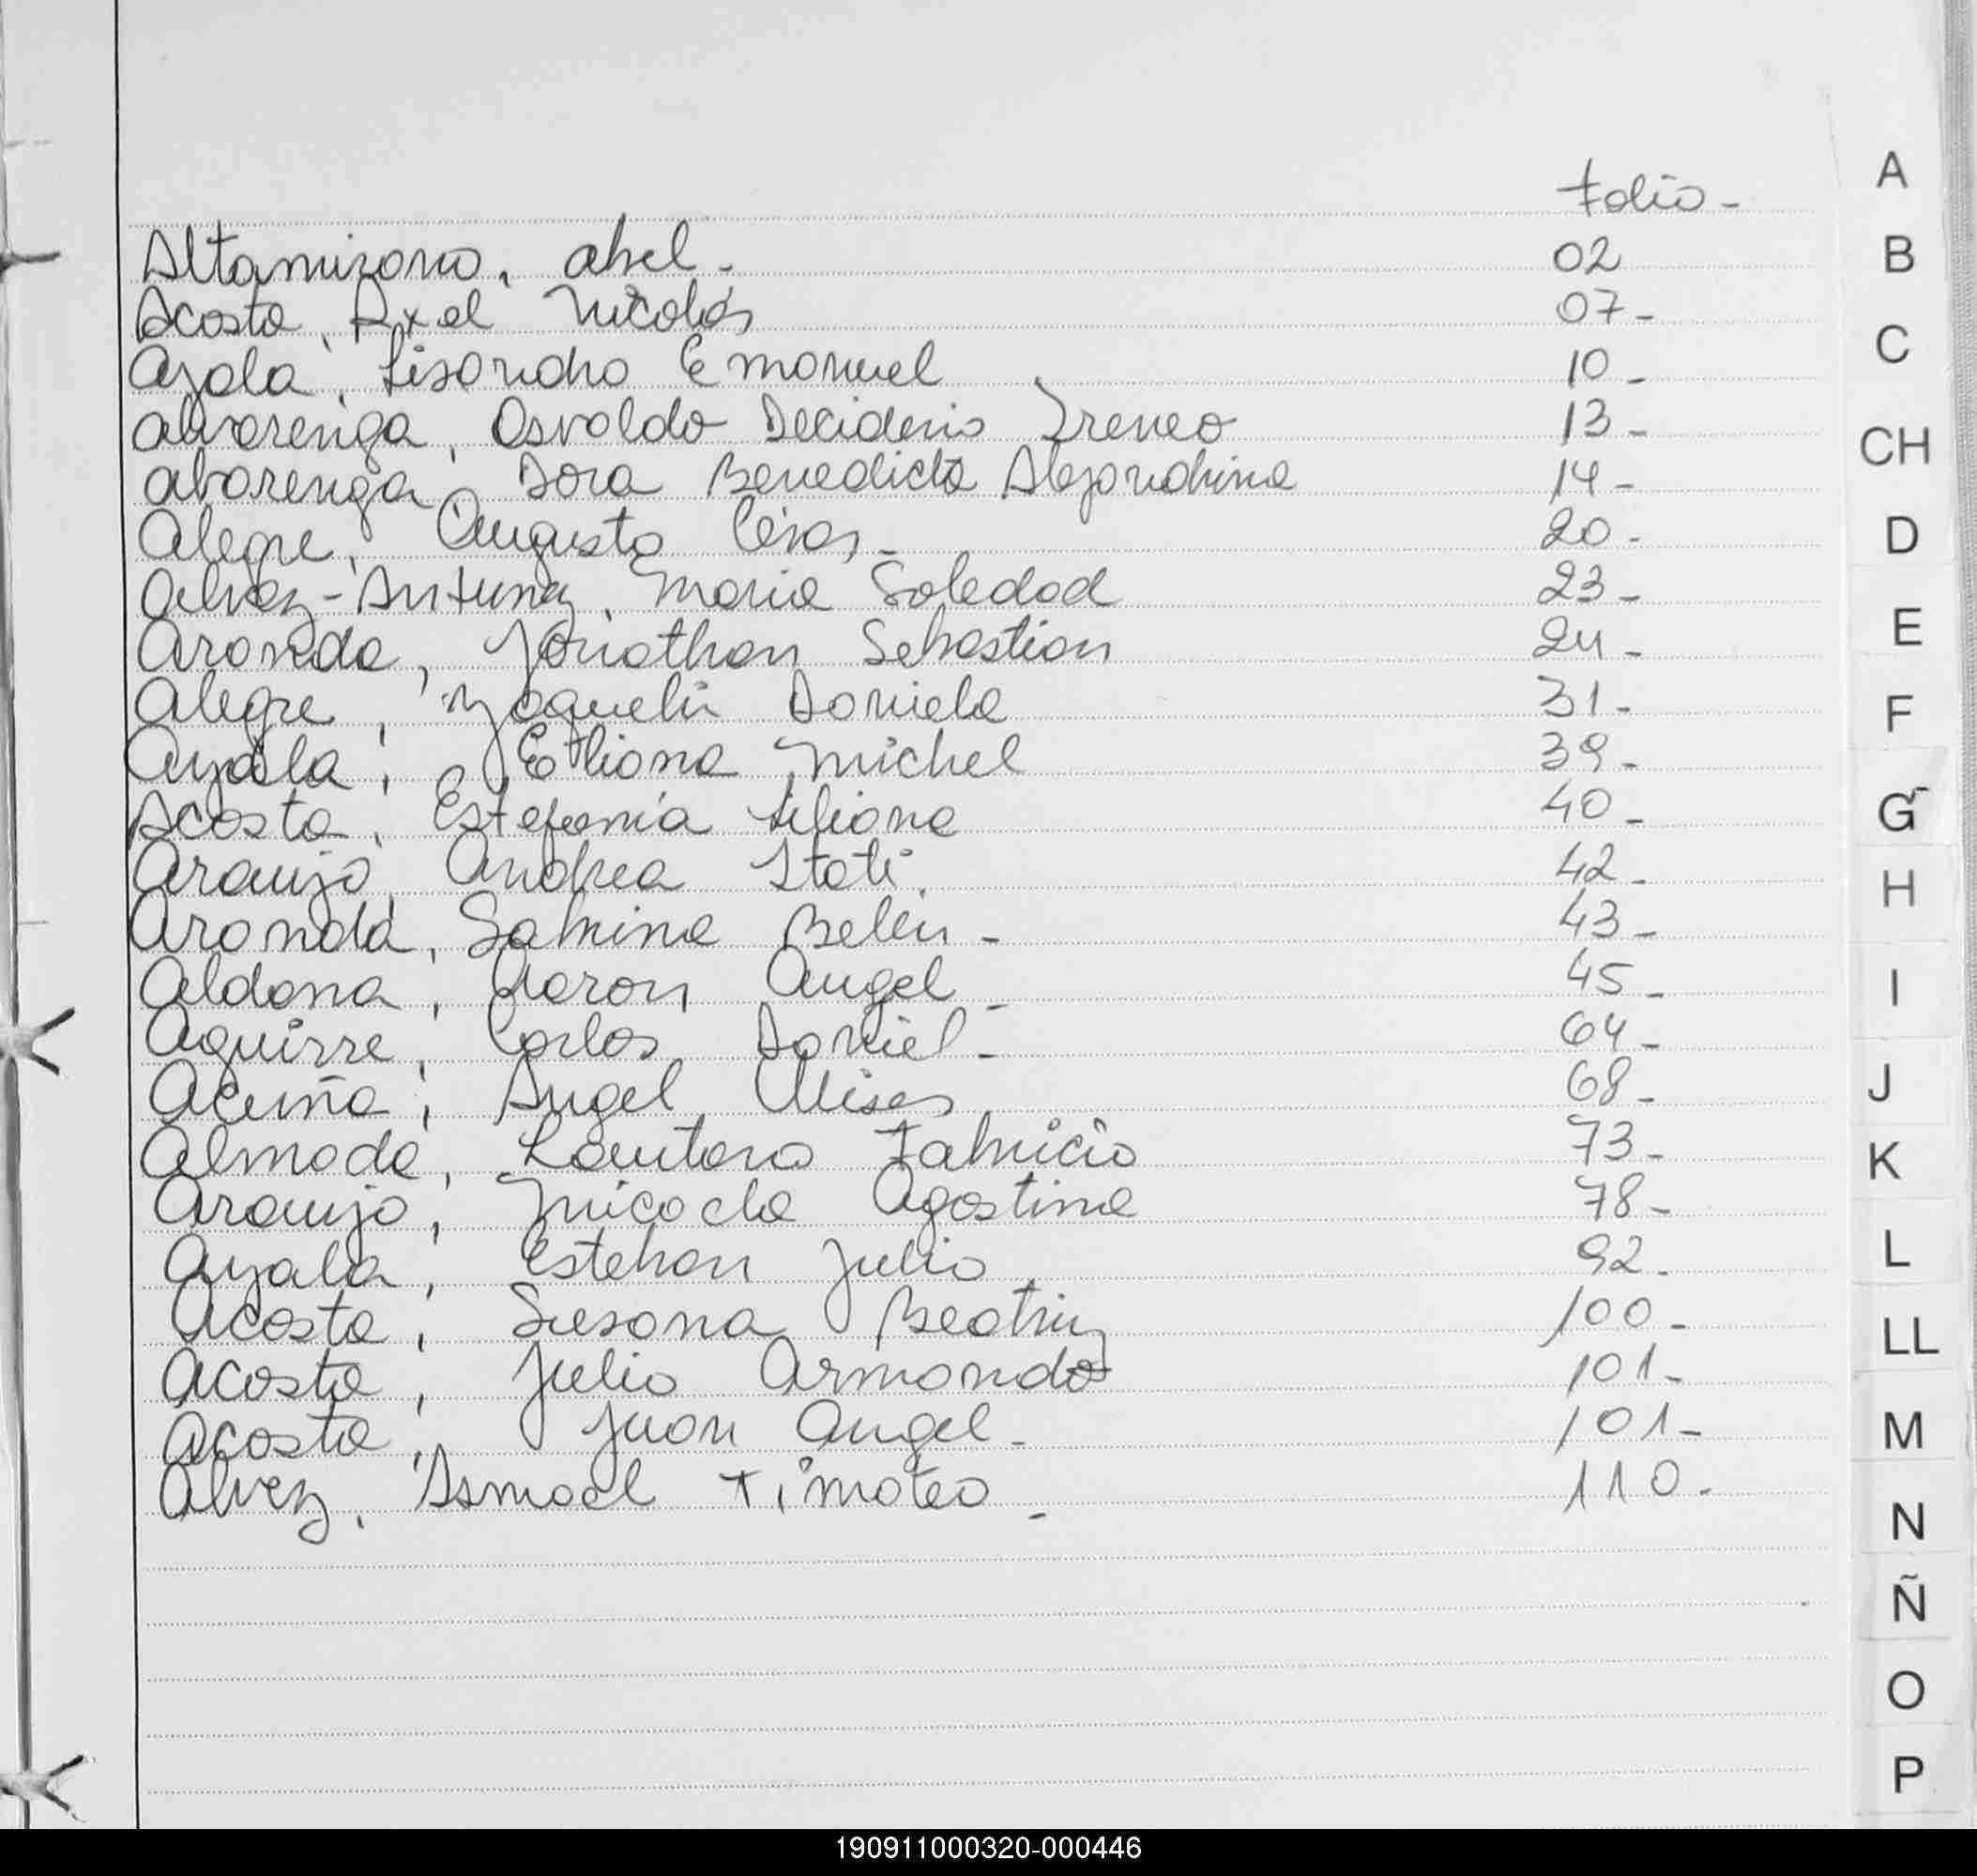 Folio -
Altamirano, Abel - 02
Acosta, Axel Nicolás 07 -
Ayala, Lisandro Emanuel 10 -
Alvarenga, Osvaldo Deciderio Ireneo 13 -
Alvarenga, Dora Benedicta Alejandrina 14 -
Alegre, Augusto César - 20 -
Alvez - Antunez, Maria Soledad 23 -
Aranda, Jonathan Sebastian 24 -
Alegre, Yaquelin Daniela 31 -
Ayala, Etiana Michel 39 -
Acosta, Estefanía Liliana 40 -
Araujo, Andrea Itati. 42 -
Aranda, Sabrina Belén - 43 -
Aldana, Aaron Angel - 45 -
Aguirre, Carlos Daniel - 64 -
Acuña, Angel Ulises 68 -
Almada, Lautaro Fabricio 73 -
Araujo, Micaela Agostina 78 -
Ayala, Esteban Julio 92 -
Acosta, Susana Beatriz 100 -
Acosta, Julio Armando 101 -
Acosta, Juan Angel - 101 -
Alvez, Ismael Timoteo - 110 -
A
B
C
CH
D
E
F
G
H
I
J
K
L
LL
M
N
Ñ
O
P
190911000320-000446